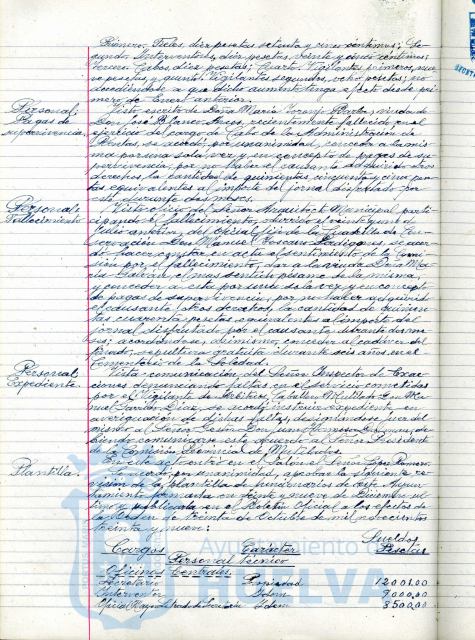 Primero: Fieles, diez pesetas setenta y cinco céntimos; Se-
gundo: Interventores, diez pesetas, veinte y cinco céntimos;
Tercero: Cabos, diez pesetas; Cuarto: Vigilantes primeros, nue-
ve pesetas, y quinto: Vigilantes segundos, ocho pesetas; no
accediéndose a que dicho aumento tenga efecto desde pri-
mero de Enero anterior.
Personal
Pagas de
supervivencia
Visto escrito de Doña María Infante viuda de
Don José Blanco, recientemente fallecido en el
ejercicio del cargo de Cabo de la Administración de
Rentas, se acordó por unanimidad, conceder a la mis-
ma por una sola vez y en concepto de pagas de su-
pervivencia, por no haber el causante adquirido otros
derechos, la cantidad de quinientas cincuenta y cinco pese-
tas equivalentes al importe del jornal disfrutado por
este, durante dos meses.
Personal
Fallecimiento
Visto oficio del Señor Arquitecto Municipal parti-
cipando el fallecimiento, ocurrido el
Julio anterior, del oficial fijo de la Cuadrilla de Con-
servación Don Manuel Toscano, se acor-
dó hacer constar en acta el sentimiento de la Comi-
sión por el fallecimiento, dar a la viuda Doña Ma-
ría el más sentido pésame de la misma,
y conceder a esta por una sola vez y en concepto
de pagas de supervivencia, por no haber adquirido
el causante otros derechos, la cantidad de quinien-
tas cuarenta pesetas equivalentes al importe del
jornal disfrutado por el causante, durante dos me-
ses; acordándose, asimismo, conceder al cadáver del
finado, sepultura gratuita durante seis años en el
Cementerio de la Soledad.
Personal
Expediente
Vista comunicación del Señor Inspector de Exac-
ciones denunciando faltas en el servicio cometidas
por el Vigilante de Arbitrios, Caballero Mutilado Don Ma-
nuel García Díaz, se acordó instruir expediente en
averiguación de dichas faltas, designándose Juez del
mismo al Señor Gestor Don Juan de-
biendo comunicarse este acuerdo al Señor Presidente
de la Comisión Provincial de Mutilados.
Plantilla
En este acto entró en el Salón el Señor López Romero.
Se acordó por unanimidad, aprobar la siguiente re-
visión de la plantilla de funcionarios de este Ayun-
tamiento formada en veinte y nueve de Diciembre úl-
timo y publicada en el Boletín Oficial a los efectos de
la Orden de treinta de Octubre de mil novecientos
treinta y nueve:
Cargos Carácter Sueldos Pesetas
Personal Técnico
Oficinas Centrales
Secretario Propiedad 12.001,00
Interventor Idem 9.000,00
Oficial Mayor Letrado de Secretaría Idem 8.500,00
Ayuntamiento de
HUELVA